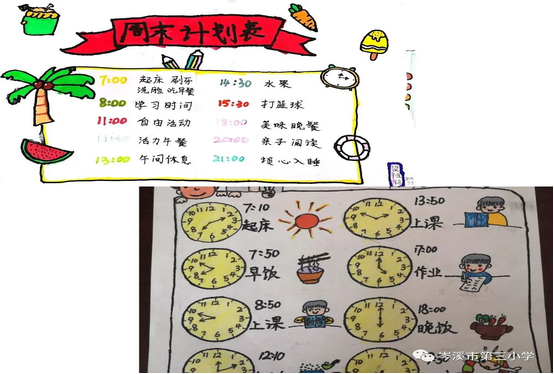 周末计划表
7:00 起床 刷牙 14:30 水果
洗脸 吃早餐
8:00 学习时间 15:30 打篮球
11:00 自由活动 18:00 美味晚餐
活力午餐 20:00 亲子阅读
13:00 午间休息 21:00 心入睡
7:10 13:50
起床 上课
7:50 17:00
早饭 作业
8:50 18:00
上课 晚饭
岑溪市第三小学
12:10